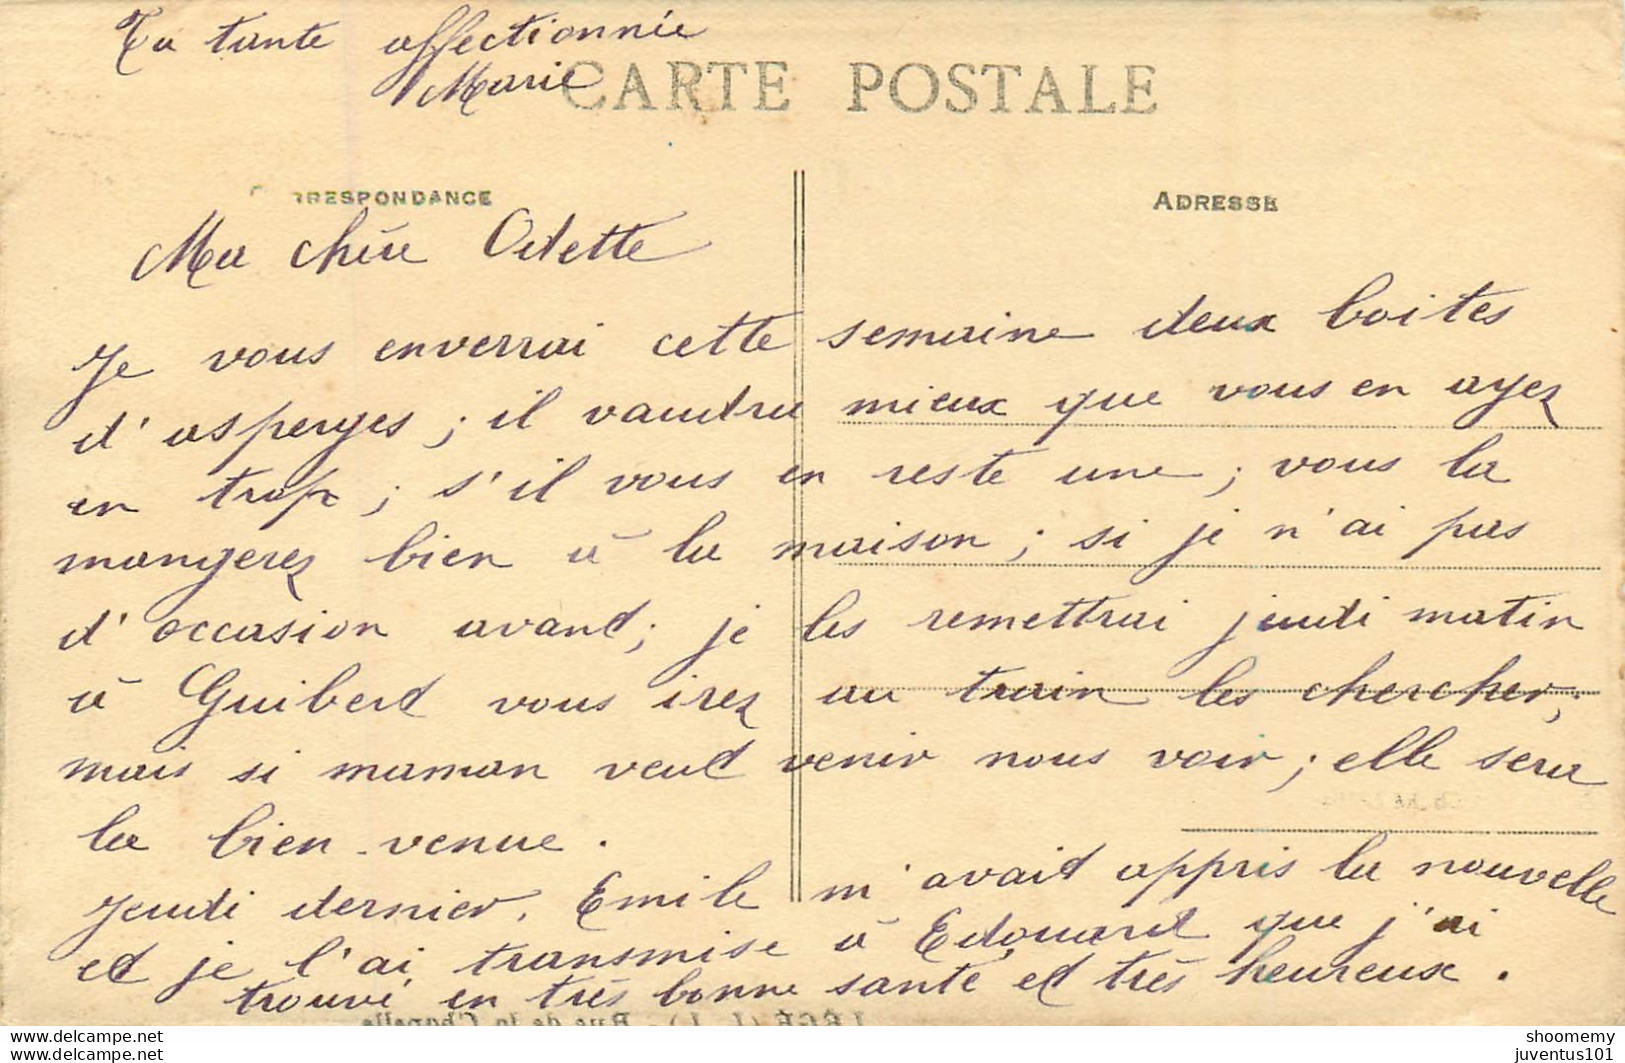 Ta tante affectionnée
Marie
CARTE POSTALE
RRESPONDANCE
ADRESSE
Ma chère Odette
Je vous enverrai cette semaine deux boites
d'asperges ; il vaudra mieux que vous en ayez
en trop ; s'il vous en reste une ; vous la
mangerez bien à la maison ; si je n'ai pas
d'occasion avant ; je les remettrai jeudi matin
à Guibert vous irez au train les chercher ;
mais si maman veut venir nous voir ; elle sera
la bien-venue.
Jeudi dernier, Emile m'avait appris la nouvelle
et je l'ai transmise à Edouard que j'ai
trouvé en très bonne santé et très heureux.
LÉGÉ (L.-I.) - Rue de la Chapelle
www.delcampe.net
www.delcampe.net
shoomemy
juventus101